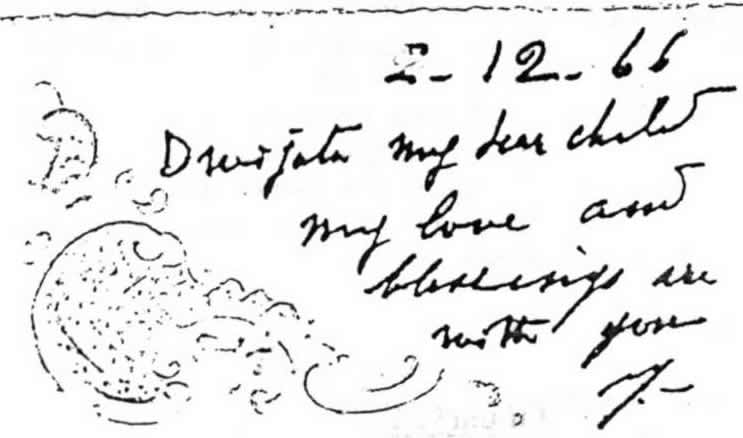 2-12-66
Dwijata my dear child
my love and
blessings are
with you